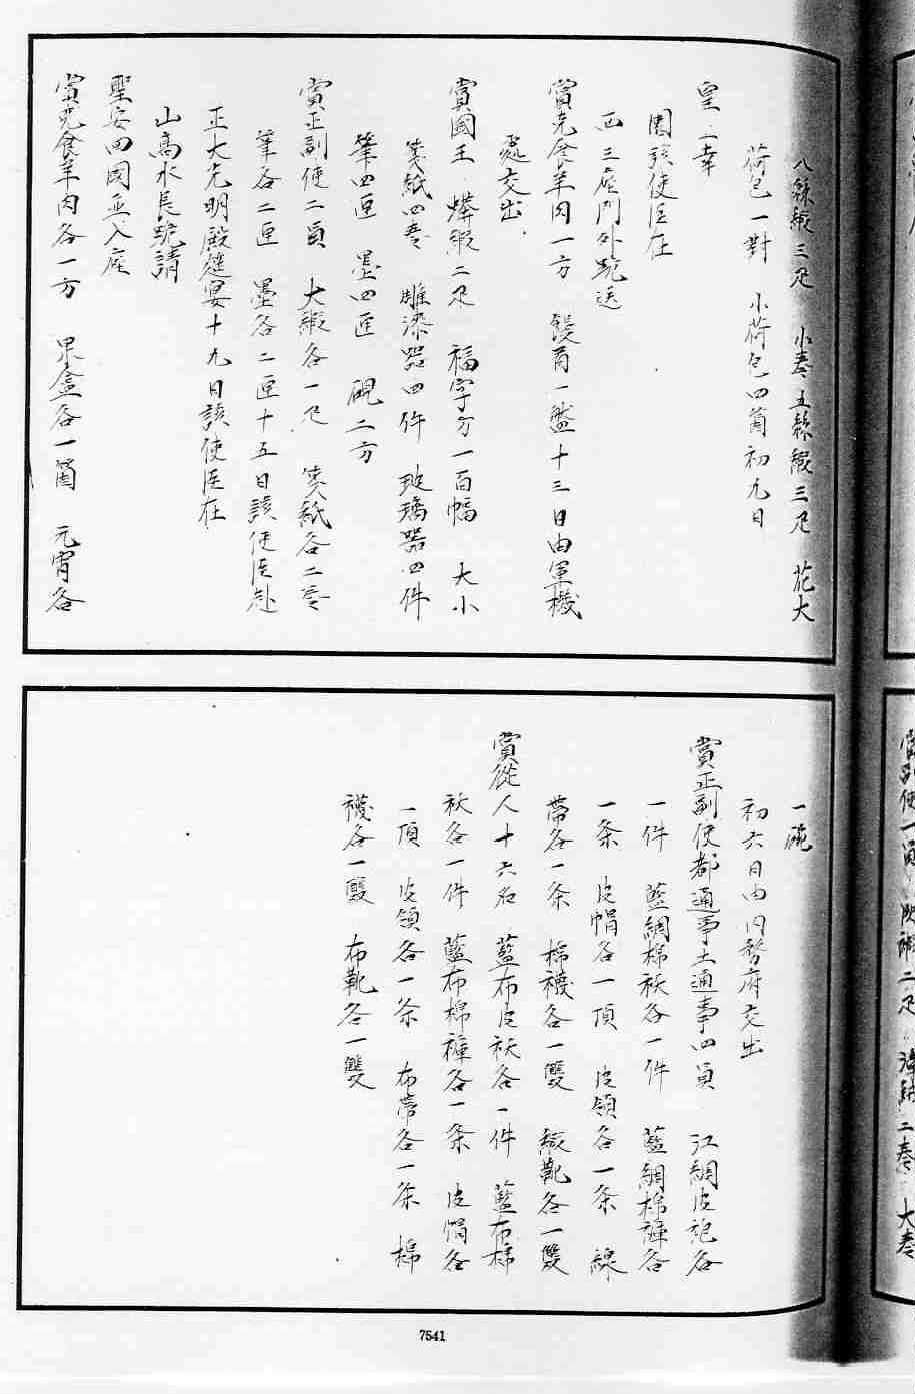 八絲緞三疋 小卷五絲緞三疋 花大
荷包一對 小荷包四箇初九日
皇上幸
園該使臣在
西三座門外跪送
賞克食羊肉一方 饅首一盤十三日由軍機
處交出
賞國王 蟒緞二疋 福字方一百幅 大小
箋紙四卷 雕漆器四件 玻璃器四件
筆四匣 墨四匣 硯二方
賞正副使二員 大緞各一疋 箋紙各二卷
筆各二匣 墨各二匣十五日該使臣赴
正大光明殿筵宴十九日該使臣在
山高水長跪請
聖安回國並入座
賞克食羊肉各一方 果盒各一箇 元宵各
一碗
初六日由內務府交出
賞正副使都通事土通事四員 江綢皮袍各
一件 藍綢棉襖各一件 藍綢棉褲各
一条 皮帽各一頂 皮領各一条 線
帶各一条 棉襪各一雙 緞靴各一雙
賞從人十六名 藍布皮襖各一件 藍布棉
襖各一件 藍布棉褲各一条 皮帽各
一頂 皮領各一条 布帶各一条 棉
襪各一雙 布靴各一雙
7541